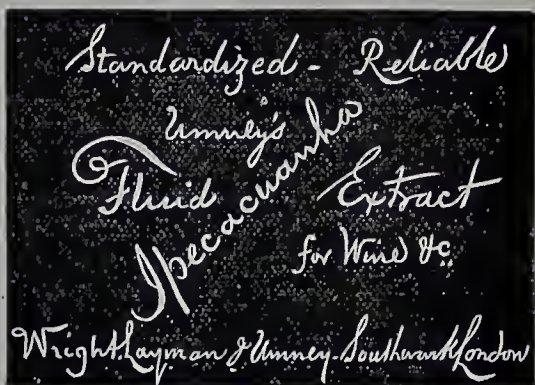 Standardized - Reliable
Umney's
Fluid Extract
Ipecacuanha
for Wine &c
Wright Layman & Umney Southwark London